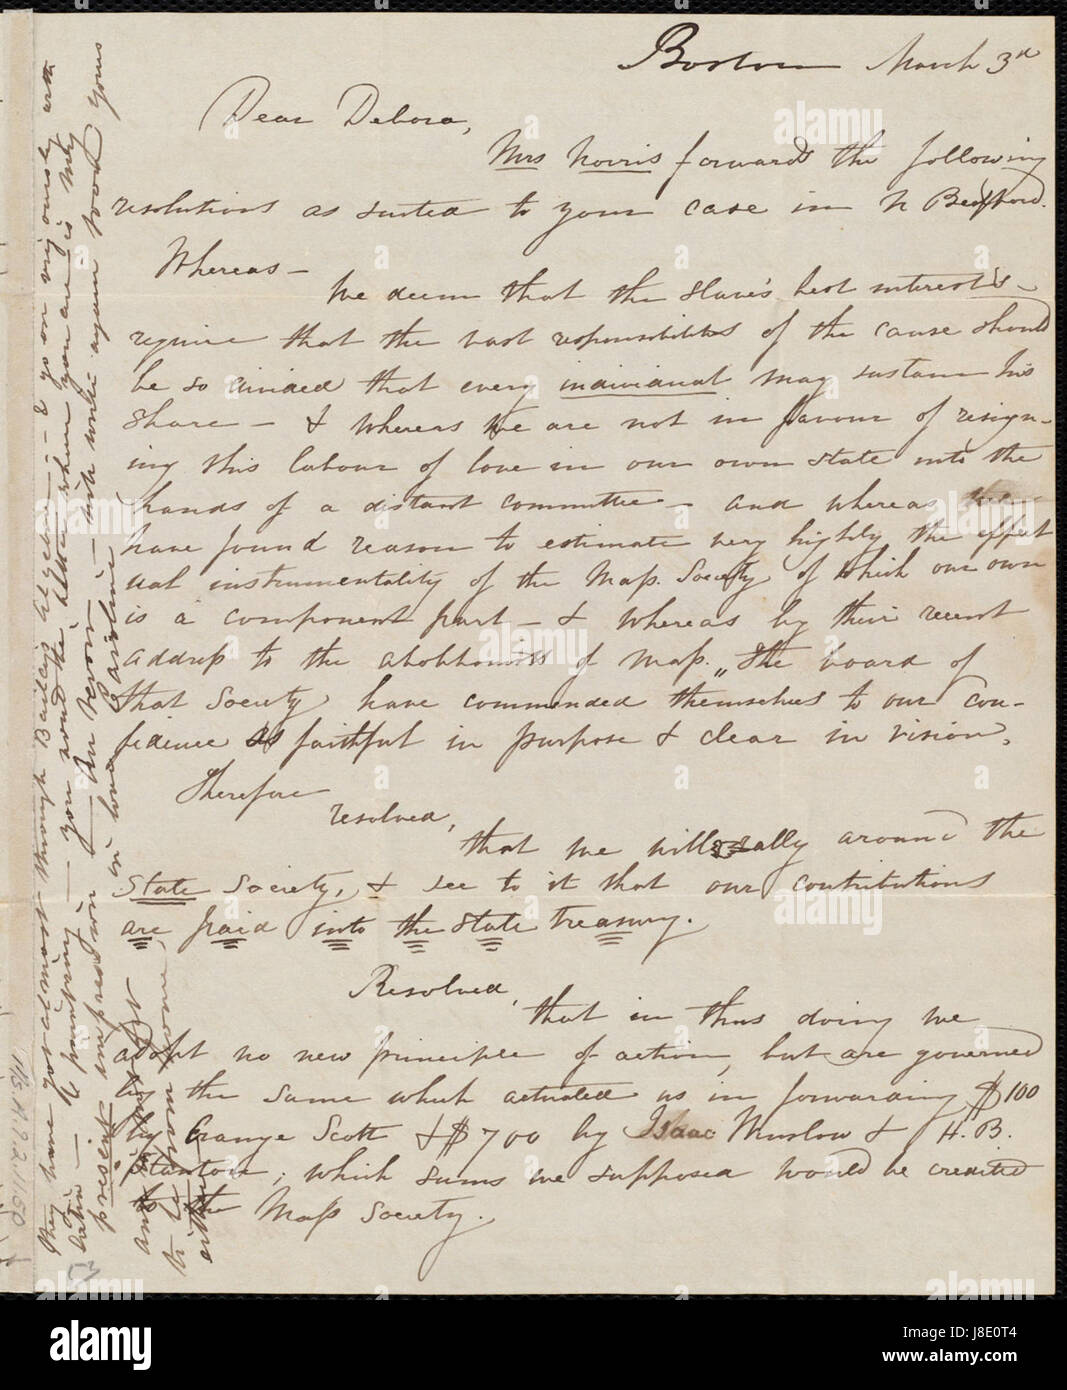 Boston March 3d
Dear Debora,
Mrs Norris forwards the following
resolutions as suited to your case in N Bedford.
Whereas –
We deem that the slave's best interest's
require that the vast responsibilities of the cause should
be so divided that every individual may sustain his
share – & whereas we are not in favour of resign-
ing this labour of love in our own state into the
hands of a distant committee – and whereas we
have found reason to estimate very highly the effect
ual instrumentality of the Mass. Society of which our own
is a component part – & whereas by their recent
address to the abolitionists of Mass. "the board of
that Society have commended themselves to our con-
fidence as faithful in purpose & clear in vision,
Therefore
resolved,
that we will rally around the
State Society, & see to it that our contributions
are, paid into the State treasury.
Resolved,
that in thus doing we
adopt no new principle of action, but are governed
by the same which actuated us in forwarding $100
by Orange Scott & $700 by Isaac Winslow & H. B.
Stanton; which sums we supposed would be credited
to the Mass Society.
They have got almost through Bailey's Algebra – & go on vigorously with
Latin – & painting – you and the better where you are is my
present impression – Au revoir – with
in love Caroline
Ms.A.9.2.11.50
alamy
Image ID: J8E0T4
www.alamy.com